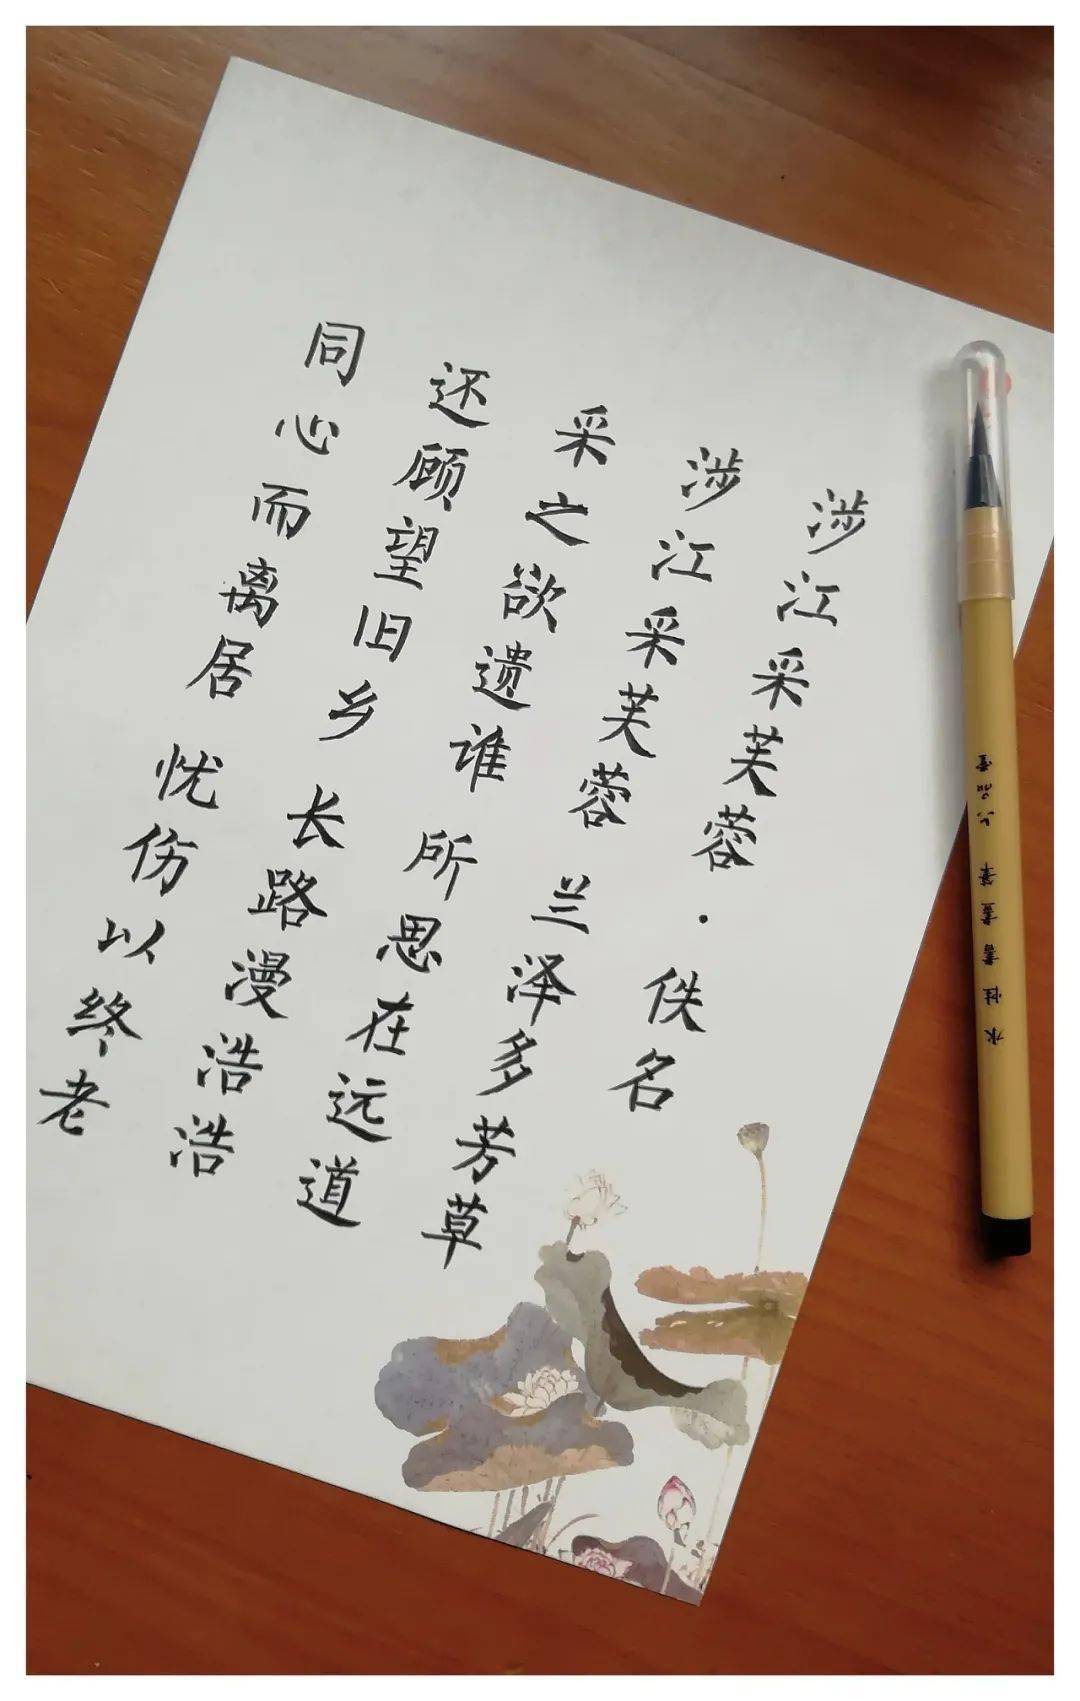 涉江采芙蓉·佚名
涉江采芙蓉 兰泽多芳草
采之欲遗谁 所思在远道
还顾望旧乡 长路漫浩浩
同心而离居 忧伤以终老
水性書畫筆 六品堂